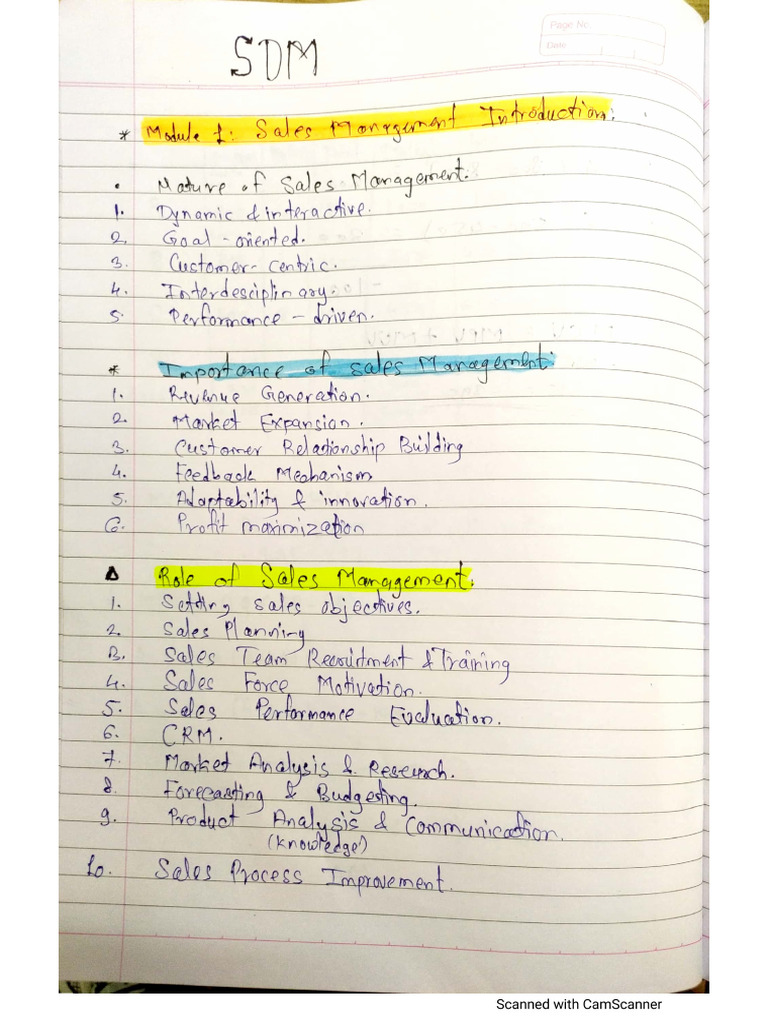 Page No
Date
SDM
* Module 1: Sales Management Introduction:
• Nature of Sales Management.
1. Dynamic & interactive.
2. Goal-oriented.
3. Customer-centric.
4. Interdesciplinary.
5. Performance-driven.
* Importance of sales Management:
1. Revenue Generation.
2. Market Expansion.
3. Customer Relationship Building
4. Feedback Mechanism
5. Adaptability & innovation.
6. Profit maximization
Δ Role of Sales Management:
1. Setting sales objectives.
2. Sales Planning
3. Sales Team Recruitment & Training
4. Sales Force Motivation.
5. Sales Performance Evaluation.
6. CRM.
7. Market Analysis & Research.
8. Forecasting & Budgesting.
9. Product Analysis & Communication.
(knowledge)
10. Sales Process Improvement.
Scanned with CamScanner